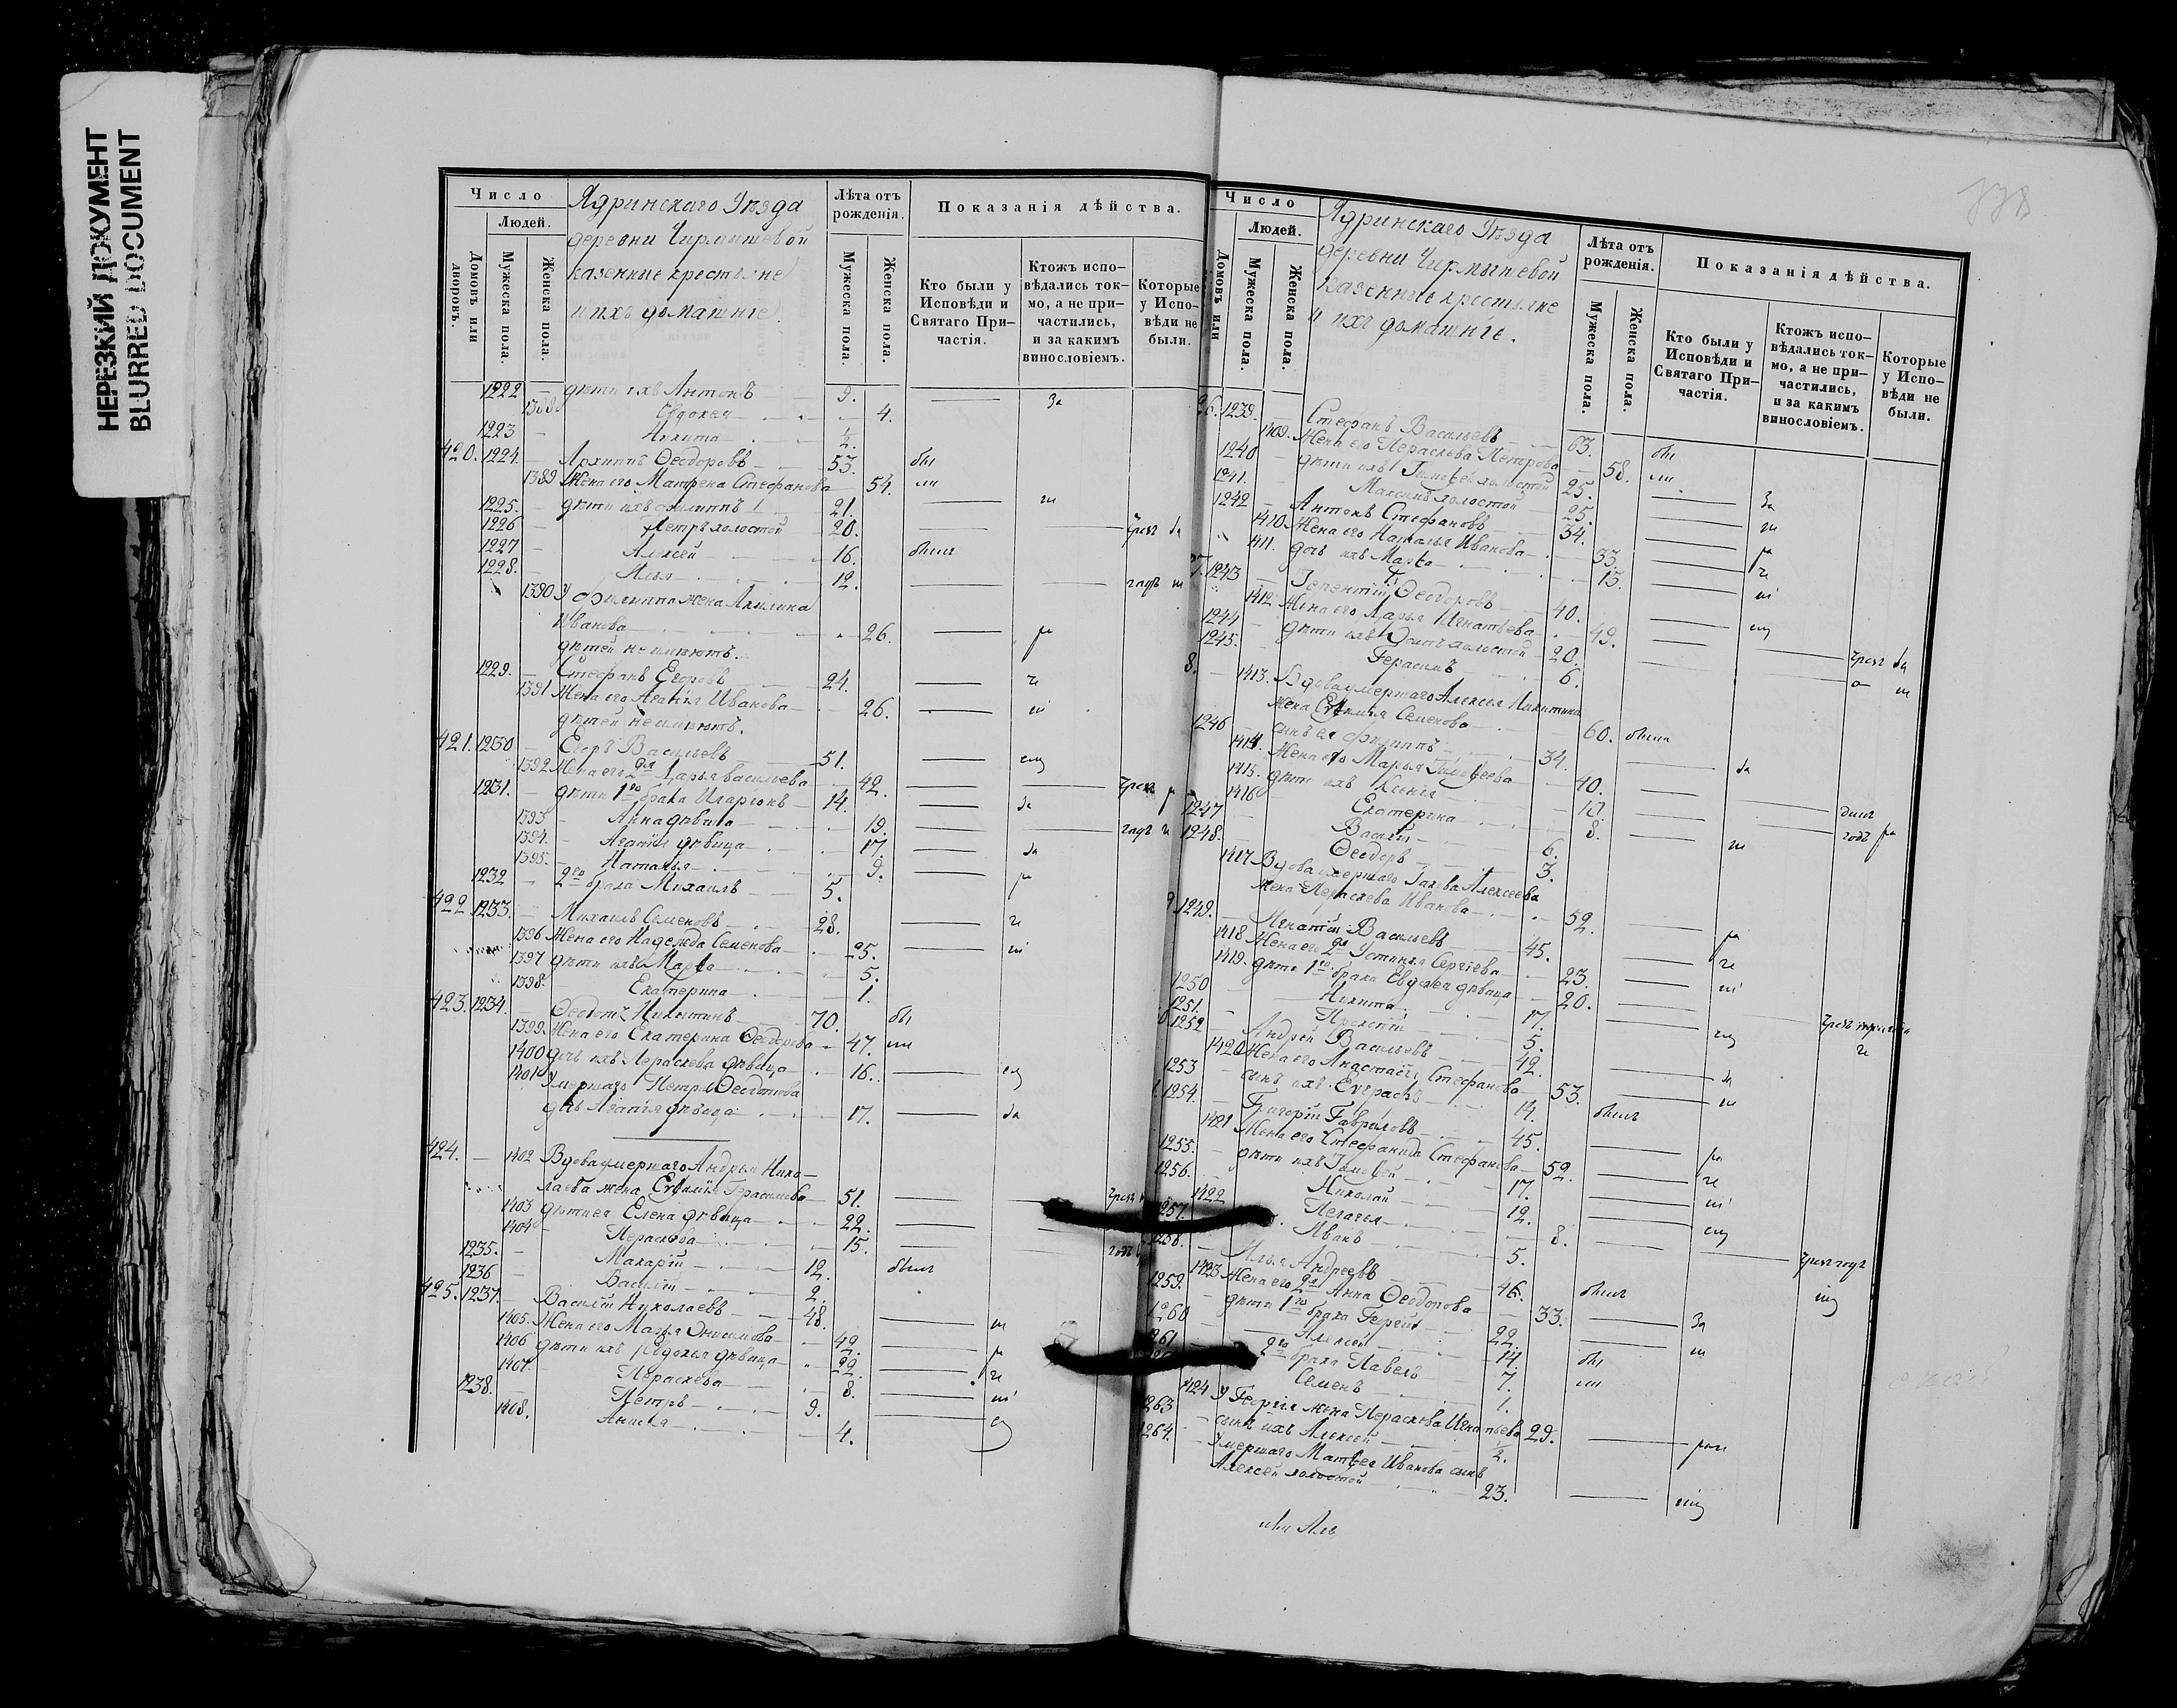 НЕРЕЗКИЙ ДОКУМЕНТ
BLURRED DOCUMENT
Число
Людей.
Домовъ или дворовъ.
Мужеска пола.
Женска пола.
Ядринскаго Уѣзда
деревни Чирмышевой
казенные крестьяне
и ихъ домашніе
Лѣта отъ рожденія.
Мужеска пола.
Женска пола.
Показанія дѣйства.
Кто были у Исповѣди и Святаго Причастія.
Ктожъ исповѣдались токмо, а не причастились, и за какимъ винословіемъ.
Которые у Исповѣди не были.
1222 — дѣти ихъ Антонъ 9. За
Евдокея 4.
1223 — Никита ½.
420. 1224. — Архипъ Ѳеодоровъ 53. бы
1389 Жена его Матрена Стефанова 54. ли
1225. — дѣти ихъ Филиппъ 21.
1226 — Петръ холостой 20.
1227 — Алексей 16. былъ
1228. — Илья 12.
1390 У Филиппа жена Акилина
Иванова 26.
дѣтей не имѣютъ.
1229. — Стефанъ Егоровъ 24.
1391 Жена его Агаѳія Иванова 26.
дѣтей не имѣютъ.
421. 1230 — Егоръ Васильевъ 51.
1392 Жена его 2я Дарья Васильева 42.
1231. — дѣти 1го брака Иларіонъ 14.
1393 — Анна дѣвица 19.
1394. — Агаѳія дѣвица 17.
1395. — Наталья 9.
1232 — 2го брака Михаилъ 5.
422 1233. — Михаилъ Семеновъ 28.
1396 Жена его Надежда Семенова 25.
1397 дѣти ихъ Марѳа 5.
1398. Екатерина 1.
423. 1234. — Ѳеодотъ Никитинъ 70. бы
1399. Жена его Екатерина Ѳеодорова 47. ли
1400 дочь ихъ Параскева дѣвица 16.
1401 Умершаго Петра Ѳеодотова
дочь Агаѳія дѣвица 17.
424. — 1402 Вдова умершаго Андрея Нико-
лаева жена Евѳимія Герасимова 51.
1403 дѣти ея Елена дѣвица 22.
1404 — Параскева 15.
1235. — Макарій 12. былъ
1236 — Василій 2.
425. 1237. — Василій Николаевъ 48.
1405. Жена его Марья Онисимова 42.
1406 дѣти ихъ Евдокья дѣвица 22.
1407. Параскева 8.
1238. — Петръ 9.
1408. Анисья 4.
Число
Людей.
Домовъ или
Мужеска пола.
Женска пола.
Ядринскаго Уѣзда
деревни Чирмышевой
казенные крестьяне
и ихъ домашніе.
Лѣта отъ рожденія.
Мужеска пола.
Женска пола.
Показанія дѣйства.
Кто были у Исповѣди и Святаго Причастія.
Ктожъ исповѣдались токмо, а не причастились, и за какимъ винословіемъ.
Которые у Исповѣди не были.
26. 1239. Стефанъ Васильевъ 63. бы
1409. Жена его Пераскева Петрова 58. ли
1240 — дѣти ихъ Тимоѳей холостой 25. За
1241. — Максимъ холостой 25.
1242 — Антонъ Стефановъ 34.
1410. Жена его Наталья Иванова 33.
1411. дочь ихъ Марѳа 15.
7. 1243 — Терентій Ѳеодоровъ 40.
1412. Жена его Дарья Игнатьева 49.
1244 — дѣти ихъ Осипъ холостой 20.
1245. — Герасимъ 6.
8. — 1413. Вдова умершаго Алексея Никитина
жена Евѳимія Семенова 60. была
1246 — сынъ ея Филиппъ 34.
1414. Жена его Марья Тимоѳеева 40.
1415. дѣти ихъ Ксенія 12.
1416 Екатерина 8.
1247 Василій 6.
1248. Ѳеодоръ 3.
1417 Вдова умершаго Іакова Алексеева
жена Параскева Иванова 52.
9. 1249. — Игнатій Васильевъ 45.
1418 Жена его 2я Устинья Сергіева 23.
1419. дѣти 1го брака Евдокея дѣвица 20.
1250 — Никита 17.
1251. — Прокопій 5.
1252 Андрей Васильевъ 42.
1420 Жена его Анастасія Стефанова 53.
1253 — сынъ ихъ Евграфъ 14. былъ
1. 1254. — Григорій Гавриловъ 45.
1421 Жена его Стефанида Стефанова 52.
1255. — дѣти ихъ Тимоѳей 17.
1256. — Николай 12.
1422 Пелагея 8.
1257. Иванъ 5.
1258. — Илья Андреевъ 46. былъ
1423 Жена его 2я Анна Ѳеодорова 33. За
1259. — дѣти 1го брака Георгій 22.
1260 Алексей 14. бы
1261 2го брака Павелъ 7. ли
Семенъ 1.
1424 У Георгія жена Параскева Игнатьева 29.
1263 — сынъ ихъ Алексей ½.
1264. — Умершаго Матвея Иванова сынъ
Алексей холостой 23.